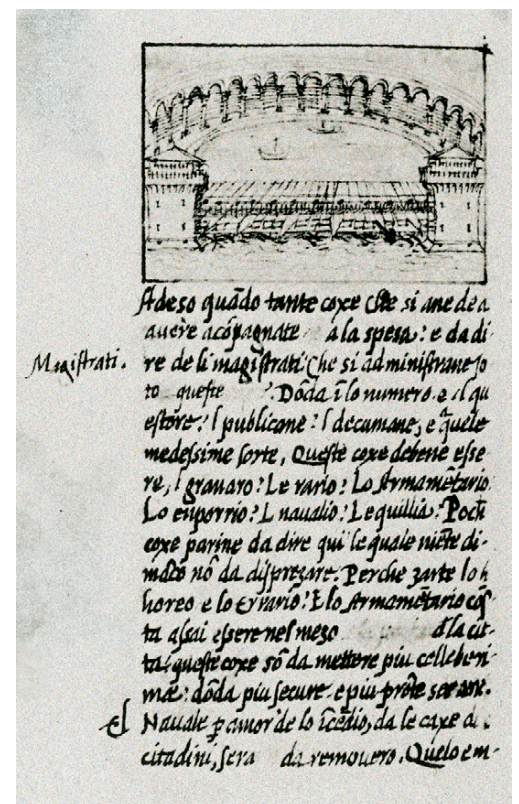 Adeso quãdo tante coxe che si ane de a
auere acõpagnate a la spesa: e da di
Magistrati.
re de li magistrati che si administrane so
to queste . Dõda ĩ lo numero e el qu
estore: I publicane: I decumane, e quele
medessime sorte, Queste coxe debene esse
re, I granaro: Le rario: Lo Armamẽtario
Lo enporrio: L naualio: Le quillia: Poch
coxe parine da dire qui le quale niẽte di-
mãco nõ da disprezare. Perche zarte lo h
horeo e lo errario: E lo Armamẽtario cõs
ta assai essere nel mezo d la cit-
ta: queste coxe sõ da mettere piu celleberi
mæ: dõda piu secure e piu prõte serane.
El
Nauale ꝑ amor de lo ĩcẽdio, da le caxe de
citadini, sera da remouero. Quelo em-